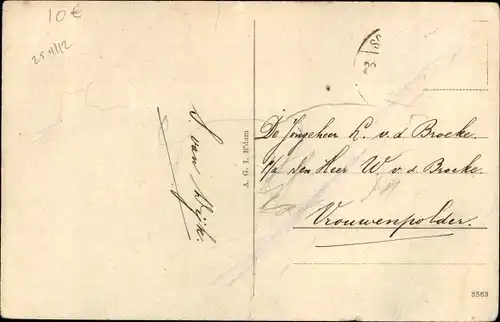 10€
25/1/12
S. van Dijk.
A. G. I. R'dam
De Jongeheer L. v. d Broeke.
p/a den Heer W. v. d Broeke
Vrouwenpolder.
3563